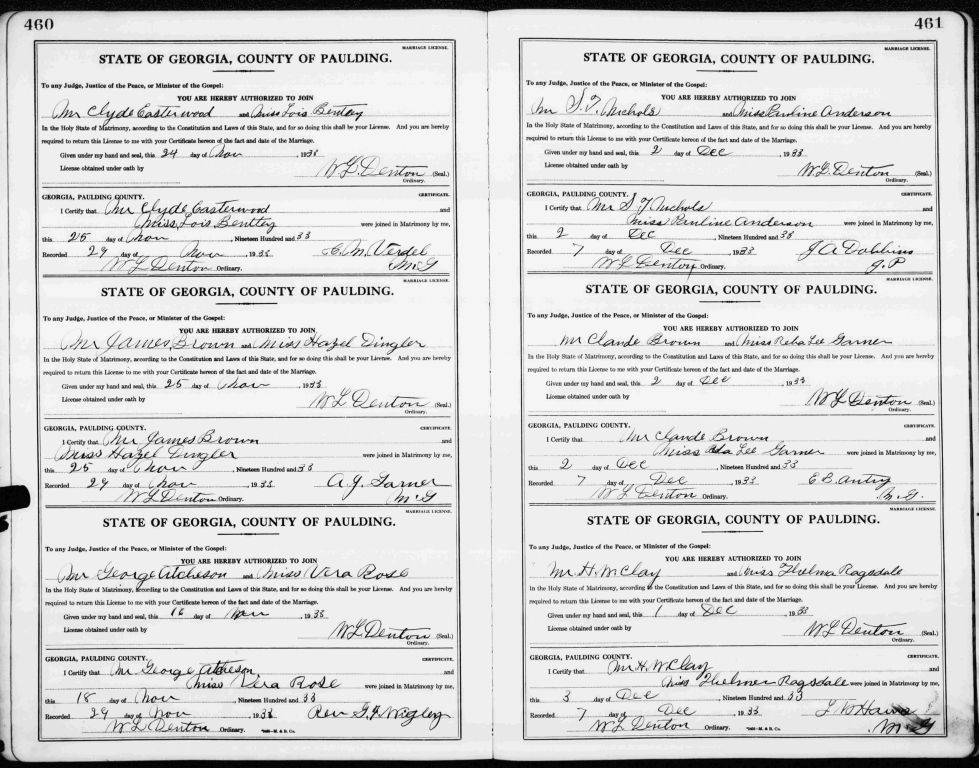 460
MARRIAGE LICENSE.
STATE OF GEORGIA, COUNTY OF PAULDING.
To any Judge, Justice of the Peace, or Minister of the Gospel:
YOU ARE HEREBY AUTHORIZED TO JOIN
Mr Clyde Easterwood and Miss Lois Bentley
In the Holy State of Matrimony, according to the Constitution and Laws of this State, and for so doing this shall be your License. And you are hereby
required to return this License to me with your Certificate hereon of the fact and date of the Marriage.
Given under my hand and seal, this 24 day of Nov , 1933
License obtained under oath by
W L Denton (Seal.)
Ordinary.
CERTIFICATE.
GEORGIA, PAULDING COUNTY.
I Certify that Mr Clyde Easterwood and
Miss Lois Bentley were joined in Matrimony by me,
this 25 day of Nov , Nineteen Hundred and 33
Recorded 29 day of Nov , 1933 E. M. Verdel
W L Denton Ordinary. M.G
MARRIAGE LICENSE.
STATE OF GEORGIA, COUNTY OF PAULDING.
To any Judge, Justice of the Peace, or Minister of the Gospel:
YOU ARE HEREBY AUTHORIZED TO JOIN
Mr James Brown and Miss Hazel Dingler
In the Holy State of Matrimony, according to the Constitution and Laws of this State, and for so doing this shall be your License. And you are hereby
required to return this License to me with your Certificate hereon of the fact and date of the Marriage.
Given under my hand and seal, this 25 day of Nov , 1933
License obtained under oath by
W L Denton (Seal.)
Ordinary.
GEORGIA, PAULDING COUNTY. CERTIFICATE.
I Certify that Mr James Brown and
Miss Hazel Dingler were joined in Matrimony by me,
this 25 day of Nov , Nineteen Hundred and 33
Recorded 29 day of Nov , 1933 A. J. Garner
W L Denton Ordinary. M.G
MARRIAGE LICENSE.
STATE OF GEORGIA, COUNTY OF PAULDING.
To any Judge, Justice of the Peace, or Minister of the Gospel:
YOU ARE HEREBY AUTHORIZED TO JOIN
Mr George Atcheson and Miss Vera Rose
In the Holy State of Matrimony, according to the Constitution and Laws of this State, and for so doing this shall be your License. And you are hereby
required to return this License to me with your Certificate hereon of the fact and date of the Marriage.
Given under my hand and seal, this 16 day of Nov , 1933
License obtained under oath by
W L Denton (Seal.)
Ordinary.
GEORGIA, PAULDING COUNTY. CERTIFICATE.
I Certify that Mr George Atcheson and
Miss Vera Rose were joined in Matrimony by me,
this 18 day of Nov , Nineteen Hundred and 33
Recorded 29 day of Nov , 1933 Rev G. F. Wigley
W L Denton Ordinary.
461
MARRIAGE LICENSE.
STATE OF GEORGIA, COUNTY OF PAULDING.
To any Judge, Justice of the Peace, or Minister of the Gospel:
YOU ARE HEREBY AUTHORIZED TO JOIN
Mr S. T. Nichols and Miss Pauline Anderson
In the Holy State of Matrimony, according to the Constitution and Laws of this State, and for so doing this shall be your License. And you are hereby
required to return this License to me with your Certificate hereon of the fact and date of the Marriage.
Given under my hand and seal, this 2 day of Dec , 1933
License obtained under oath by
W L Denton (Seal.)
Ordinary.
CERTIFICATE.
GEORGIA, PAULDING COUNTY.
I Certify that Mr S. T. Nichols and
Miss Pauline Anderson were joined in Matrimony by me,
this 2 day of Dec , Nineteen Hundred and 33
Recorded 7 day of Dec , 1933 J. A Dobbins
W L Denton Ordinary. J. P
MARRIAGE LICENSE.
STATE OF GEORGIA, COUNTY OF PAULDING.
To any Judge, Justice of the Peace, or Minister of the Gospel:
YOU ARE HEREBY AUTHORIZED TO JOIN
Mr Claude Brown and Miss Reba Lee Garner
In the Holy State of Matrimony, according to the Constitution and Laws of this State, and for so doing this shall be your License. And you are hereby
required to return this License to me with your Certificate hereon of the fact and date of the Marriage.
Given under my hand and seal, this 2 day of Dec , 1933
License obtained under oath by
W L Denton (Seal.)
Ordinary.
GEORGIA, PAULDING COUNTY. CERTIFICATE.
I Certify that Mr Claude Brown and
Miss Lee Garner were joined in Matrimony by me,
this 2 day of Dec , Nineteen Hundred and 33
Recorded 7 day of Dec , 1933 E B. Autry
W L Denton Ordinary. M. G.
MARRIAGE LICENSE.
STATE OF GEORGIA, COUNTY OF PAULDING.
To any Judge, Justice of the Peace, or Minister of the Gospel:
YOU ARE HEREBY AUTHORIZED TO JOIN
Mr. H. W. Clay and Miss Thelma Ragsdale
In the Holy State of Matrimony, according to the Constitution and Laws of this State, and for so doing this shall be your License. And you are hereby
required to return this License to me with your Certificate hereon of the fact and date of the Marriage.
Given under my hand and seal, this 1 day of Dec , 1933
License obtained under oath by
W L Denton (Seal.)
Ordinary.
GEORGIA, PAULDING COUNTY. CERTIFICATE.
I Certify that Mr H. W. Clay and
Miss Thelmer Ragsdale were joined in Matrimony by me,
this 3 day of Dec , Nineteen Hundred and 33
Recorded 7 day of Dec , 1933
W L Denton Ordinary. M G